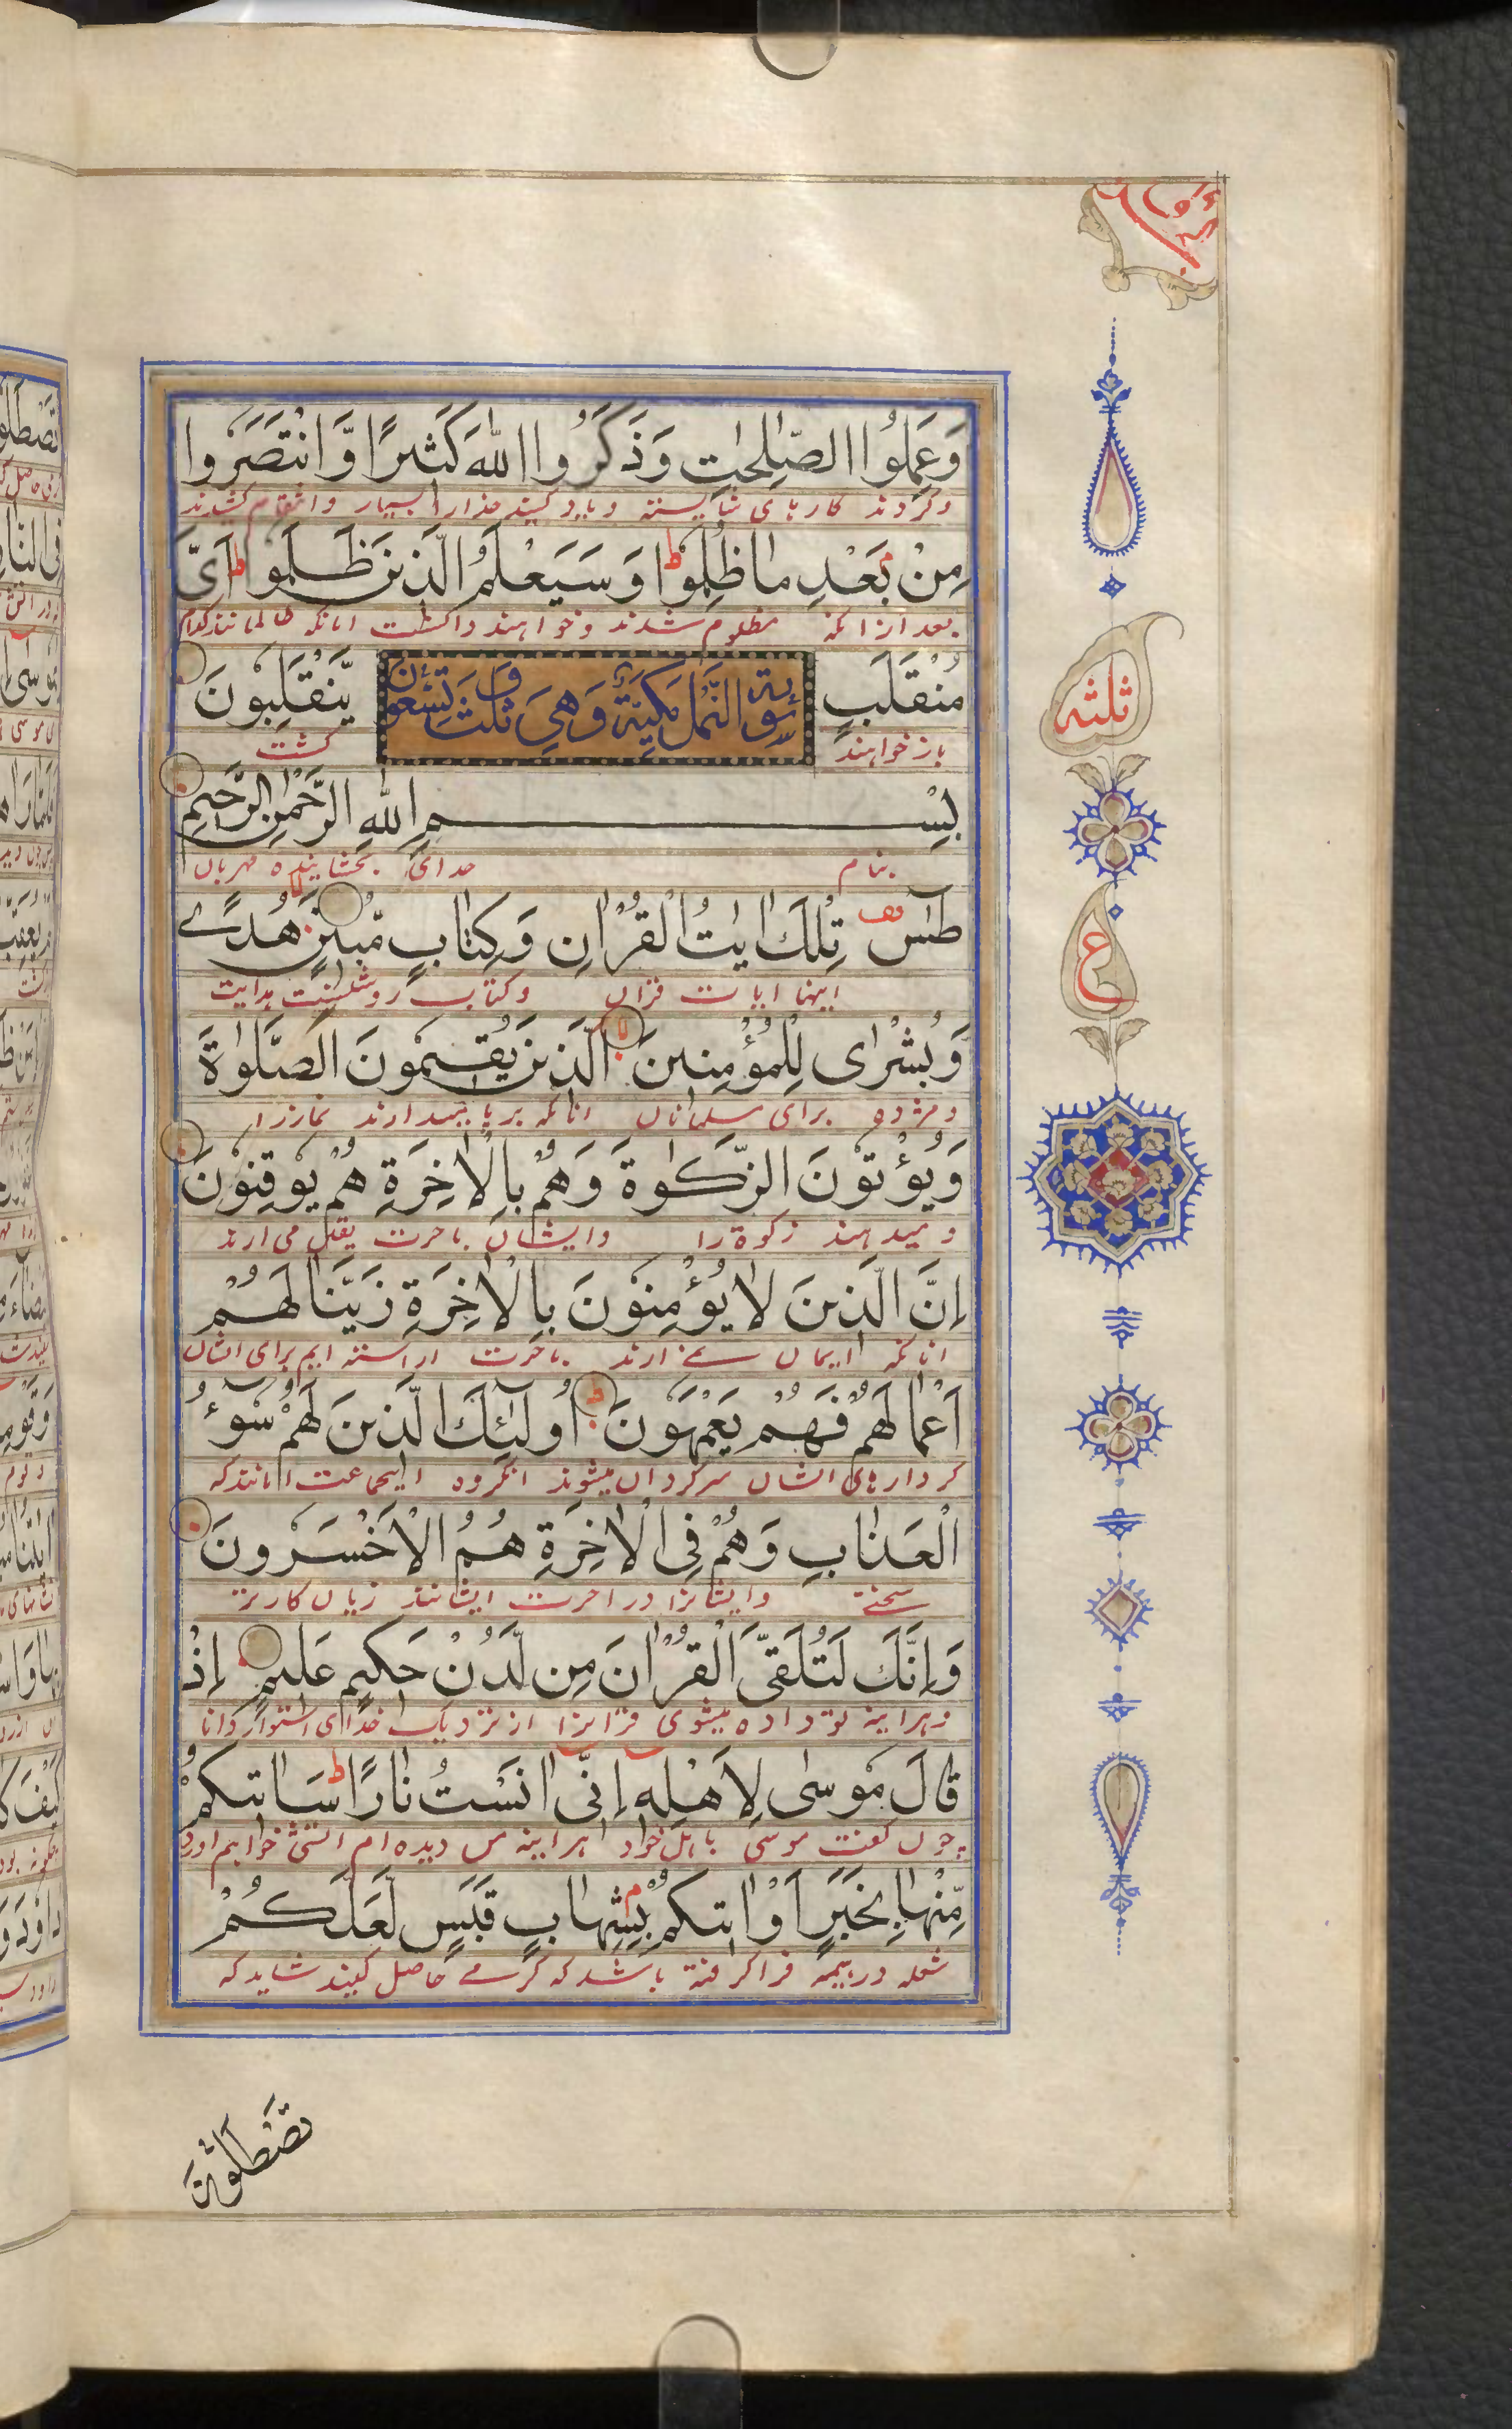 وَعَمِلُوا الصّٰلِحٰتِ وَذَكَرُوا اللّٰهَ كَثِيرًا وَّانْتَصَرُوا
وکردند کارهای شایسته ویاد کنید خدارا بسیار وانتقام کشیدند
مِنْ بَعْدِ مَا ظُلِمُوا ط وَسَيَعْلَمُ الَّذِينَ ظَلَمُوا اَیَّ
بعد ازانکه مظلوم شدند وخواهند دانست انانکه ظالمانند کدام
مُنْقَلَبٍ يَّنْقَلِبُونَ
سورة النمل مكية وهي ثلث وتسعون
باز خواهند کشت
بِسْمِ اللّٰهِ الرَّحْمٰنِ الرَّحِيمِ
بنام خدای بخشاینده مهربان
طٰسٓ تِلْكَ اٰيٰتُ الْقُرْاٰنِ وَكِتَابٍ مُّبِينٍ هُدًى
اینها ایات قران وکتاب روشنست هدایت
وَبُشْرٰى لِلْمُؤْمِنِينَ الَّذِينَ يُقِيمُونَ الصَّلٰوةَ
ومژده برای مسلمانان انانکه برپا میدارند نمازرا
وَيُؤْتُونَ الزَّكٰوةَ وَهُمْ بِالْاٰخِرَةِ هُمْ يُوقِنُونَ
و میدهند زکوة را وایشان باخرت یقین می ارند
اِنَّ الَّذِينَ لَا يُؤْمِنُونَ بِالْاٰخِرَةِ زَيَّنَّا لَهُمْ
انانکه ایمان نمے ارند باخرت اراسته ایم برای ایشان
اَعْمَالَهُمْ فَهُمْ يَعْمَهُونَ ط اُولٰٓئِكَ الَّذِينَ لَهُمْ سُوٓءُ
کردارهای ایشان سرکردان میشوند انکروه ایجماعت انانندکه
الْعَذَابِ وَهُمْ فِى الْاٰخِرَةِ هُمُ الْاَخْسَرُونَ
سختے وایشانرا در اخرت ایشانند زیان کارتر
وَاِنَّكَ لَتُلَقَّى الْقُرْاٰنَ مِنْ لَّدُنْ حَكِيمٍ عَلِيمٍ اِذْ
وهراینه تو داده میشوی قرانرا از نزدیک خدای استوار دانا
قَالَ مُوسٰى لِاَهْلِهٖ اِنِّى اٰنَسْتُ نَارًا ط سَاٰتِيكُمْ
چون کفت موسی باهل خود هراینه من دیده ام اتشی خواهم اورد
مِّنْهَا بِخَبَرٍ اَوْ اٰتِيكُمْ بِشِهَابٍ قَبَسٍ لَّعَلَّكُمْ
شعله در هیمه فراکرفته باشد که کرمے حاصل کنید شاید که
تَصْطَلُونَ
ثلثه
ع